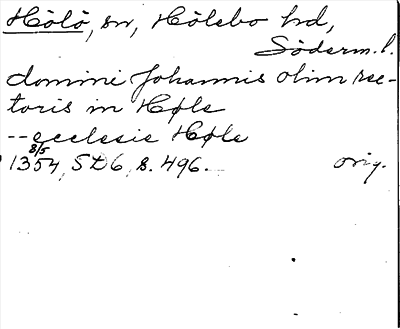 Hölö, sn, Hölebo hd,
Söderm. l.
domini Johannis olim rec-
toris in Høle
-- ecclesie Høle
8/5
1354, SD6, s. 496. orig.